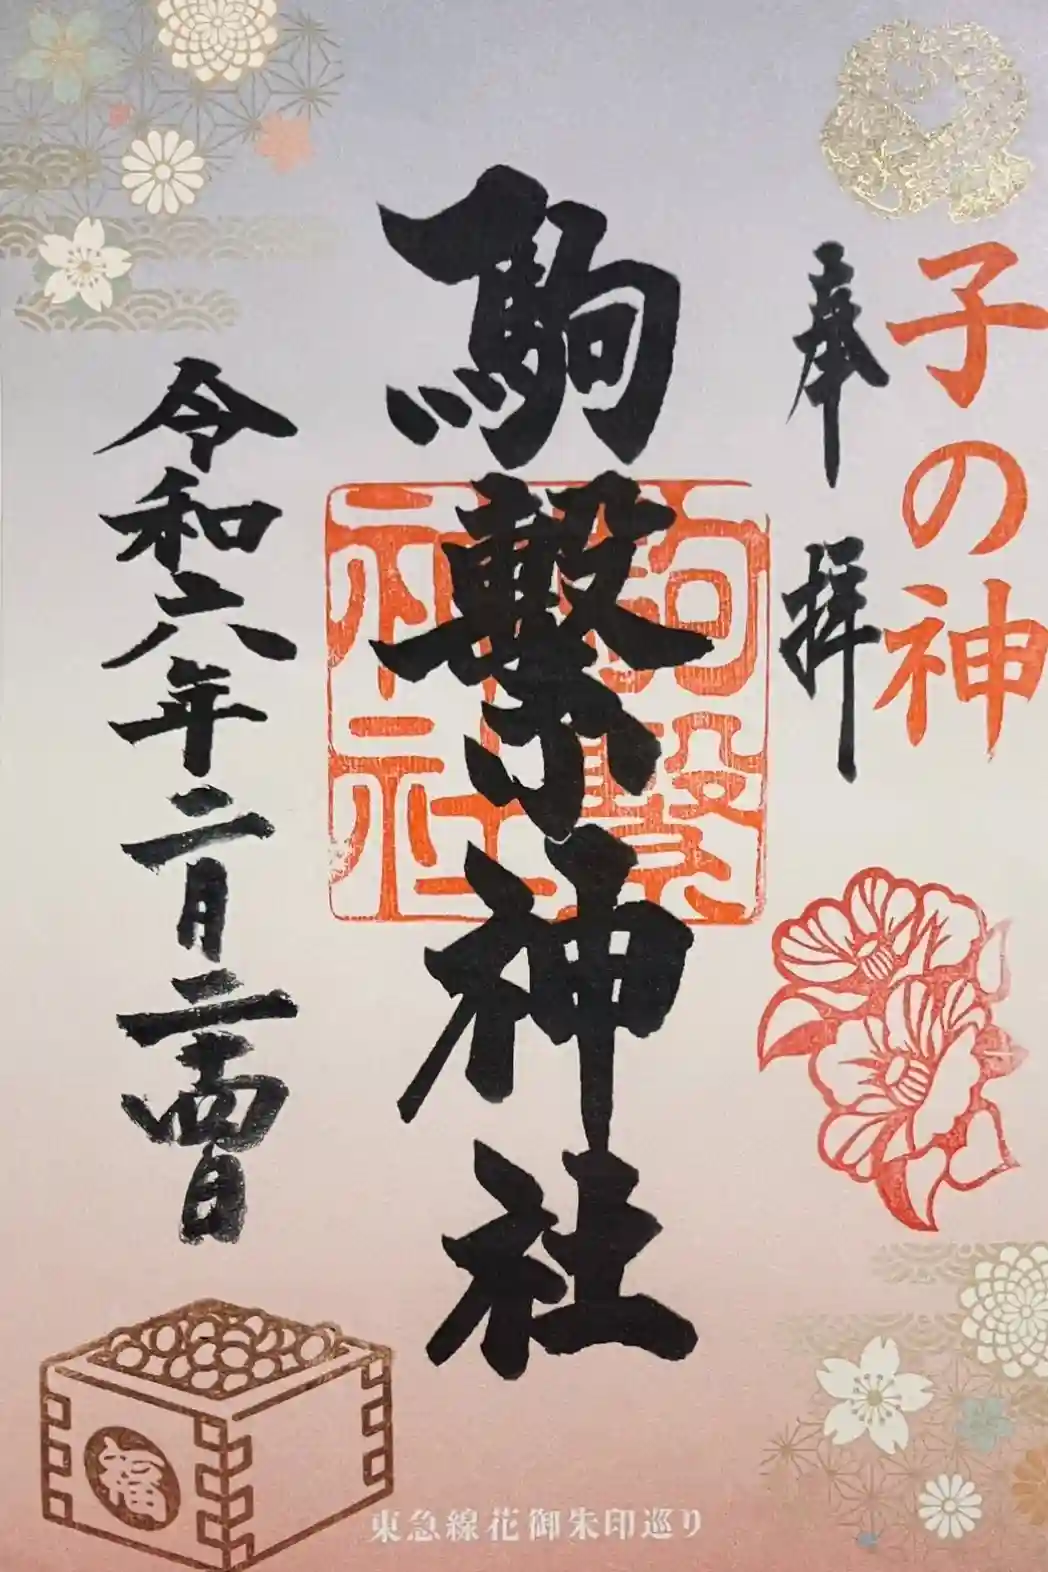 子の神
奉拝
駒繋神社
駒繋神社
令和六年二月二十四日
福
東急線花御朱印巡り